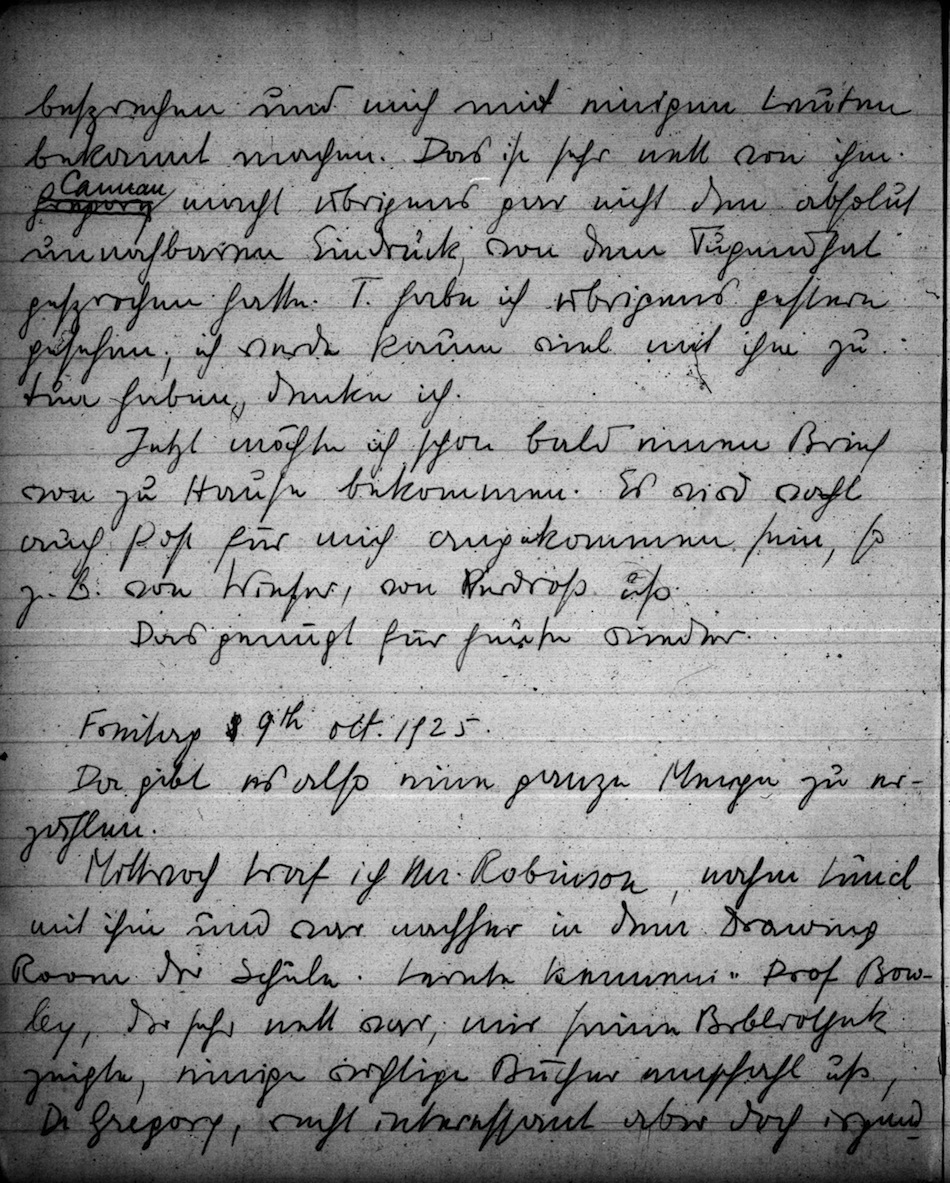 besprechen und mich mit einigen Leuten
bekannt machen. Das ist sehr nett von ihm.
Cannan
Gregory macht übrigens gar nicht den absolut
unnahbaren Eindruck, von dem Tugendhat
gesprochen hatte. T. habe ich übrigens gestern
gesehen; ich werde kaum viel mit ihm zu
tun haben, denke ich.
Jetzt möchte ich schon bald einen Brief
von zu Hause bekommen. Es wird wohl
auch Post für mich angekommen sein, so
z. B. von Winter, von Verdross usw.
Das genügt für heute wieder.
Freitag 9th Oct. 1925.
Da gibt es also eine ganze Menge zu er-
zählen.
Mittwoch traf ich Mr. Robinson, nahm Lunch
mit ihm und war nachher in dem Drawing
Room der Schule. Lernte kennen: Prof Bow-
ley, der sehr nett war, mir seine Bibliothek
zeigte, einige wichtige Bücher empfahl usw,
Dr Gregory, recht interessant aber doch irgend